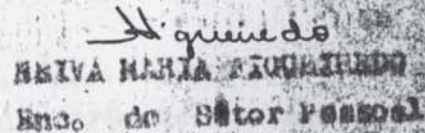 Figueiredo
NEIVA MARIA FIGUEIREDO
Enc. do Setor Pessoal